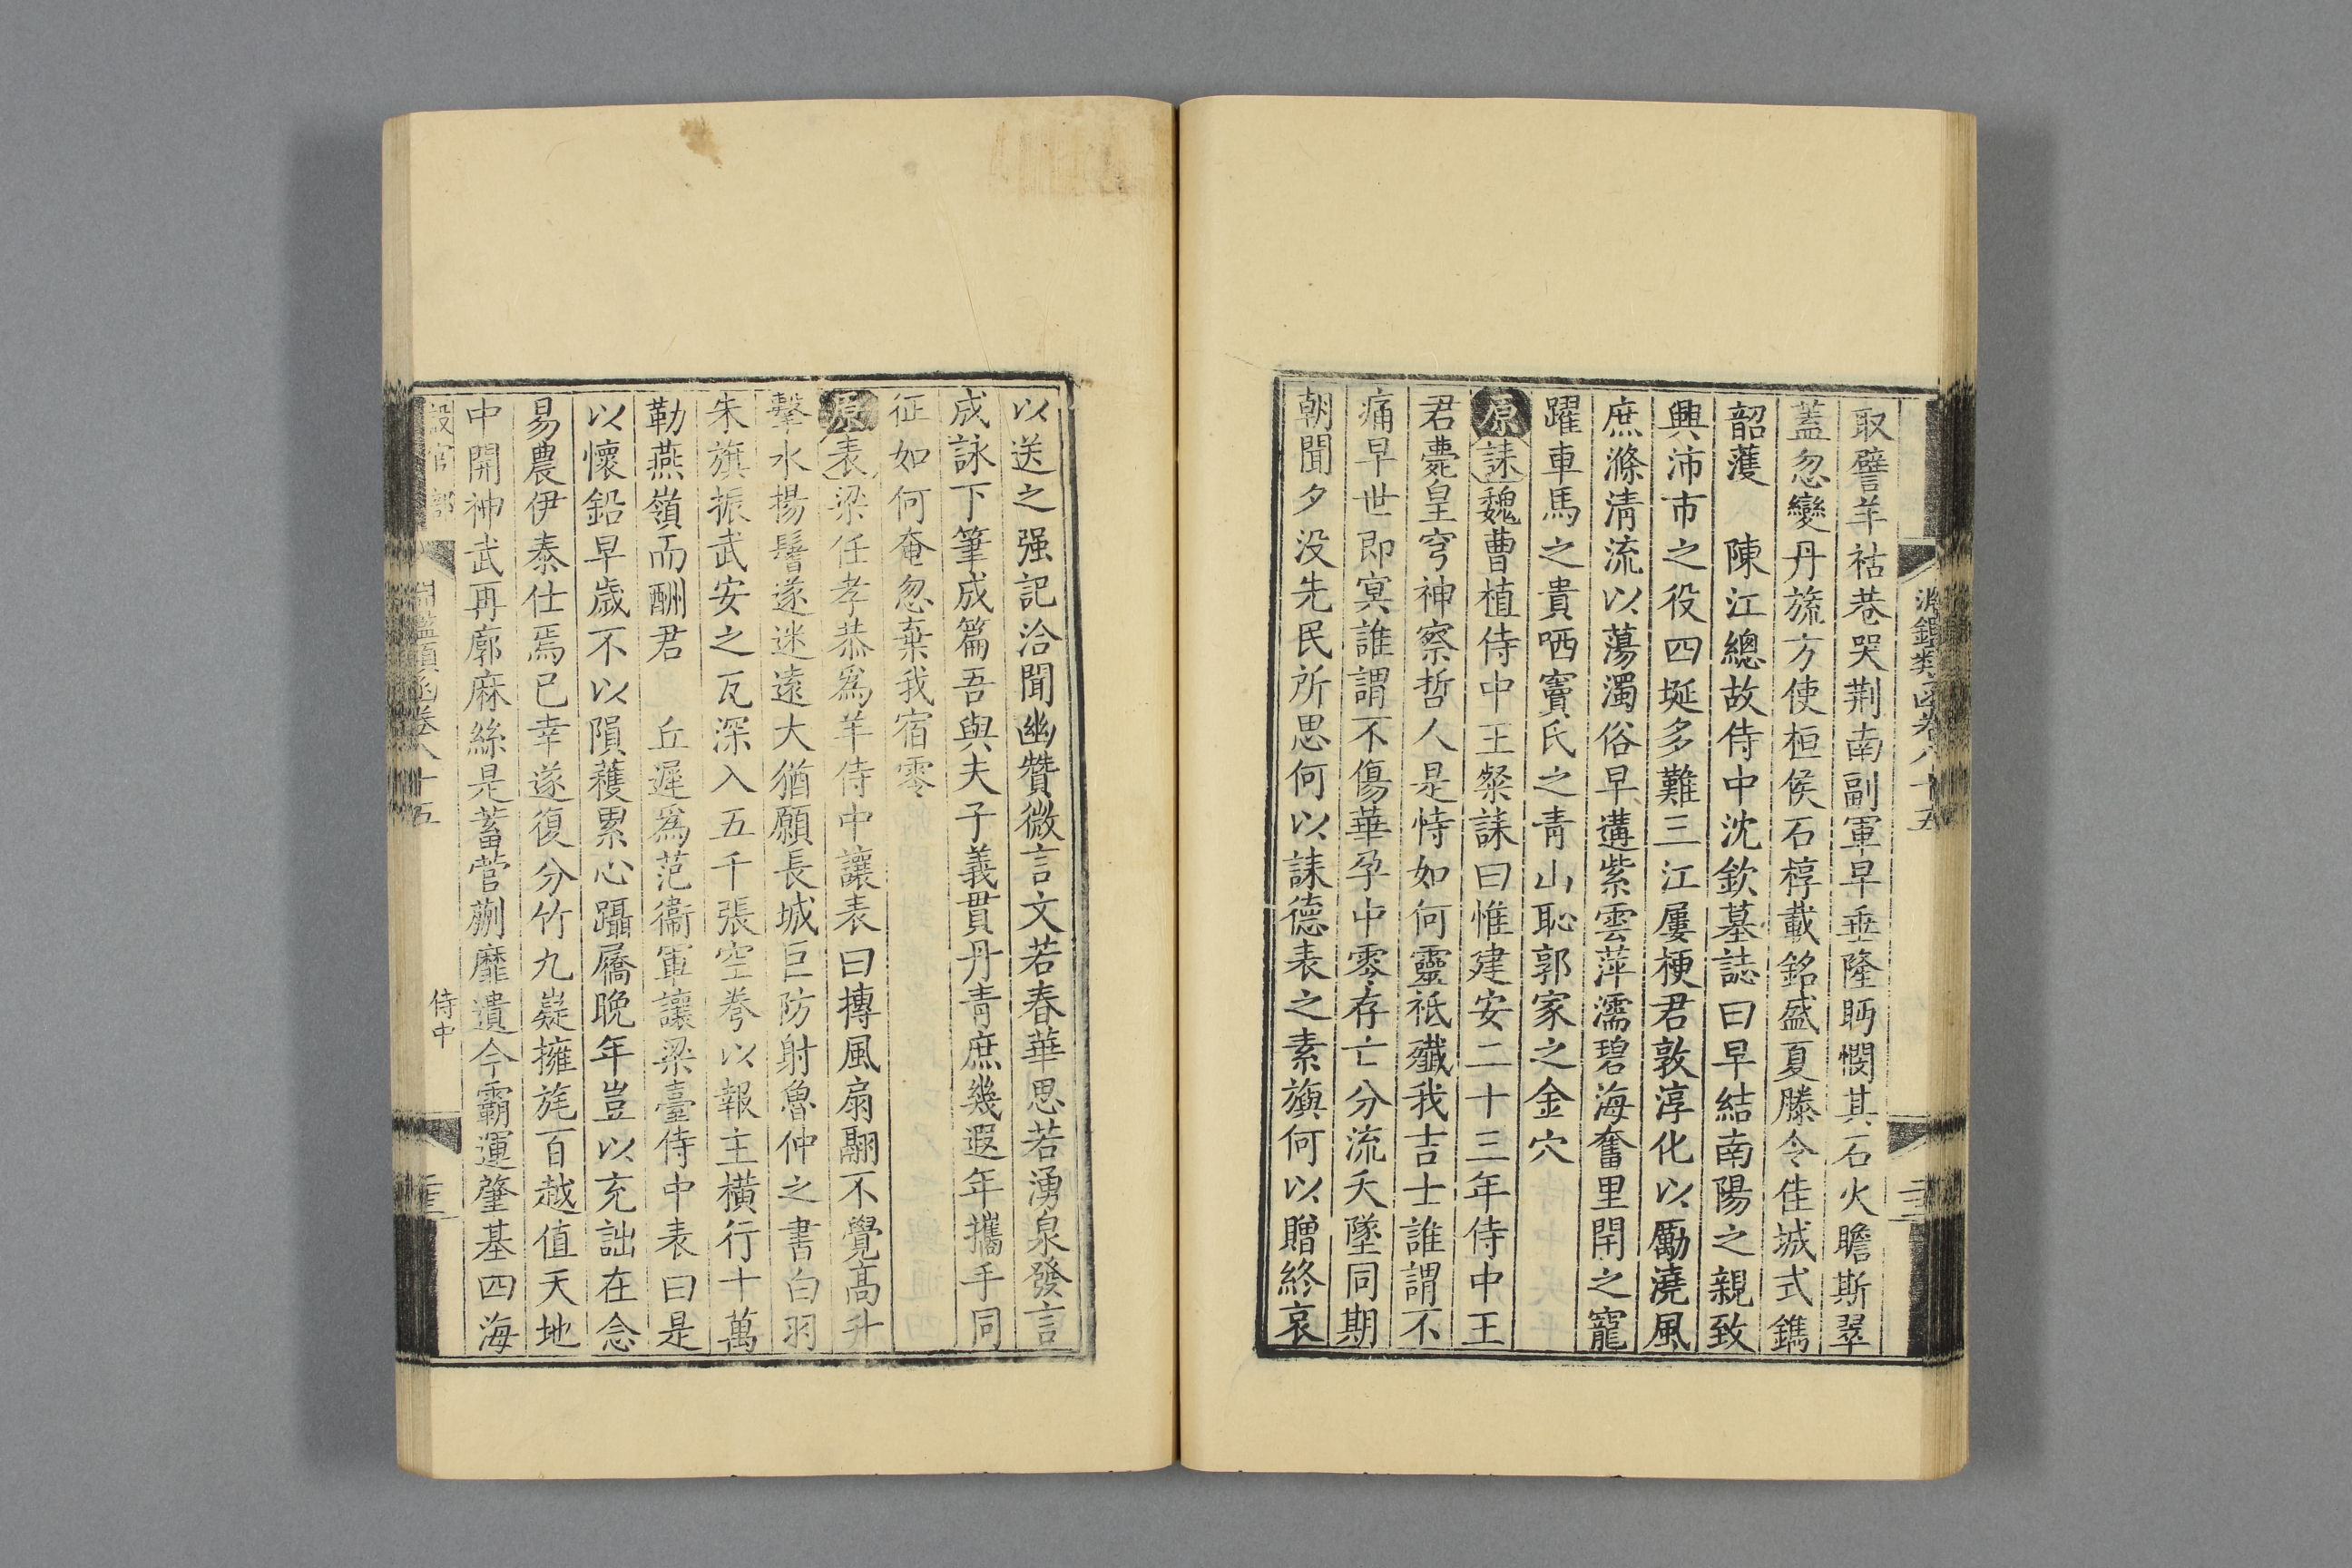 淵鑑類函卷八十五
取譬羊祜巷哭荆南副軍早垂隆眄憫其石火瞻斯翠
蓋忽變丹旐方使桓侯石椁載銘盛夏滕令佳城式鐫
韶濩　陳江總故侍中沈欽墓誌曰早結南陽之親致
興沛市之役四埏多難三江屢梗君敦淳化以勵澆風
庶滌淸流以蕩濁俗早遘紫雲萍濡碧海奮里閈之寵
躍車馬之貴哂竇氏之靑山恥郭家之金穴
原誄魏曹植侍中王粲誄曰惟建安二十三年侍中王
君薨皇穹神察哲人是恃如何靈祗殱我吉士誰謂不
痛早世即㝠誰謂不傷華孕中零存亡分流夭墜同期
朝聞夕没先民所思何以誄德表之素旗何以贈終哀
以送之强記洽聞幽贊微言文若春華思若湧泉發言
成詠下筆成篇吾與夫子義貫丹靑庶幾遐年攜手同
征如何奄忽棄我宿零
原表梁任孝恭爲羊侍中讓表曰摶風扇翮不覺高升
擊水揚鬐遂迷遠大猶願長城巨防射魯仲之書白羽
朱旗振武安之瓦深入五千張空弮以報主橫行十萬
勒燕嶺而酬君　丘遲爲范衞軍讓梁臺侍中表曰是
以懷鉛早歲不以隕穫累心躡屩晚年豈以充詘在念
易農伊泰仕焉已幸遂復分竹九嶷擁旄百越值天地
中開神武再廓麻絲是蓄菅蒯靡遺今霸運肇基四海
設官部　淵鑑類函卷八十五　侍中